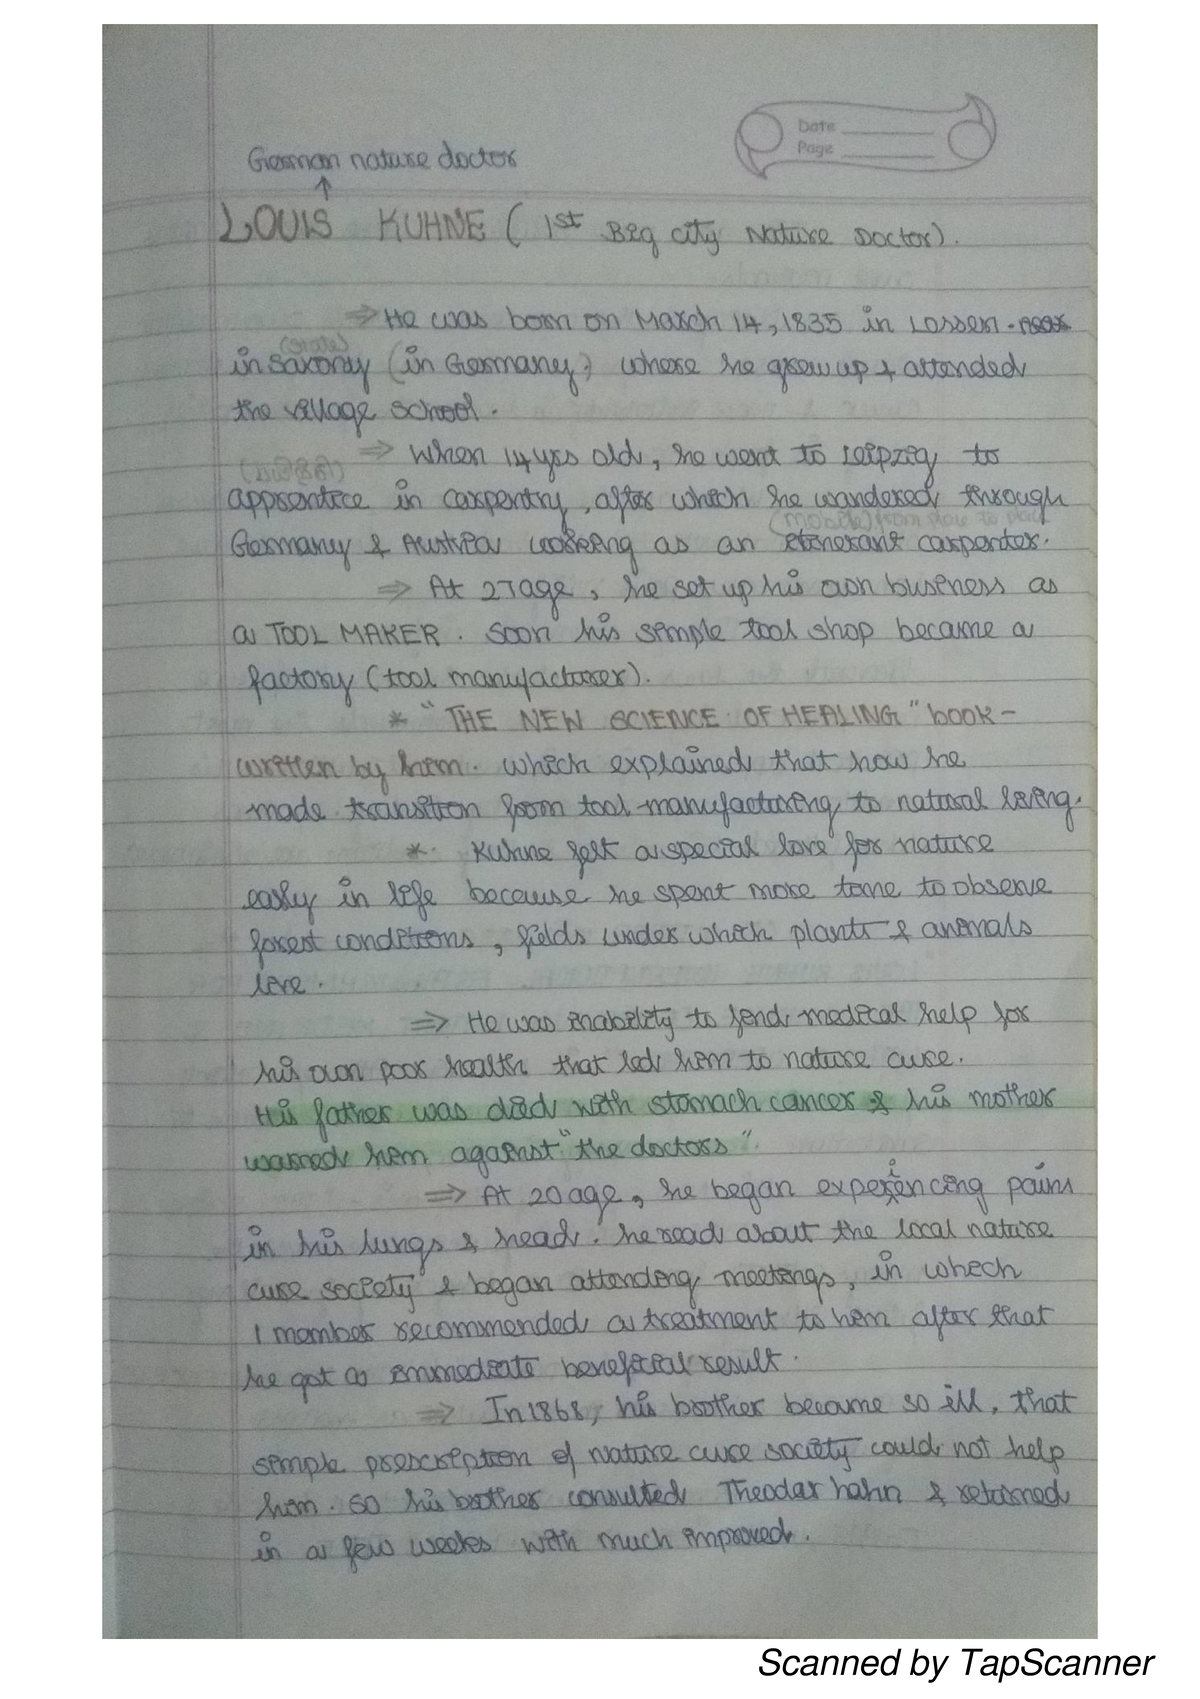 Date
Page
German nature doctor
↑
LOUIS KUHNE ( 1st Big city Nature Doctor).
⇒ He was born on March 14, 1835 in Lossen -
(state)
in Saxony (in Germaney) where he grew up & attended
the village school.
⇒ When 14 yrs old, he went to Leipzig to
apprentice in carpentry, after which he wandered through
(mobile) from place to place
Germany & Austria working as an itinerant carpenter.
⇒ At 27 age, he set up his own business as
a TOOL MAKER. Soon his simple tool shop became a
factory (tool manufacturer).
* "THE NEW SCIENCE OF HEALING" book -
written by him. which explained that how he
made transition from tool-manufacturing to natural living.
* Kuhne felt a special love for nature
early in life because he spent more time to observe
forest conditions, fields under which plants & animals
live.
⇒ He was inability to find medical help for
his own poor health that led him to nature cure.
His father was died with stomach cancer & his mother
warned him against "the doctors".
⇒ At 20 age, he began experiencing pains
in his lungs & head. he read about the local nature
cure society & began attending meetings, in which
1 member recommended a treatment to him after that
he got a immediate beneficial result.
⇒ In 1868, his brother became so ill, that
simple prescription of Nature cure society could not help
him. so his brother consulted Theodar hahn & returned
in a few weeks with much improved.
Scanned by TapScanner